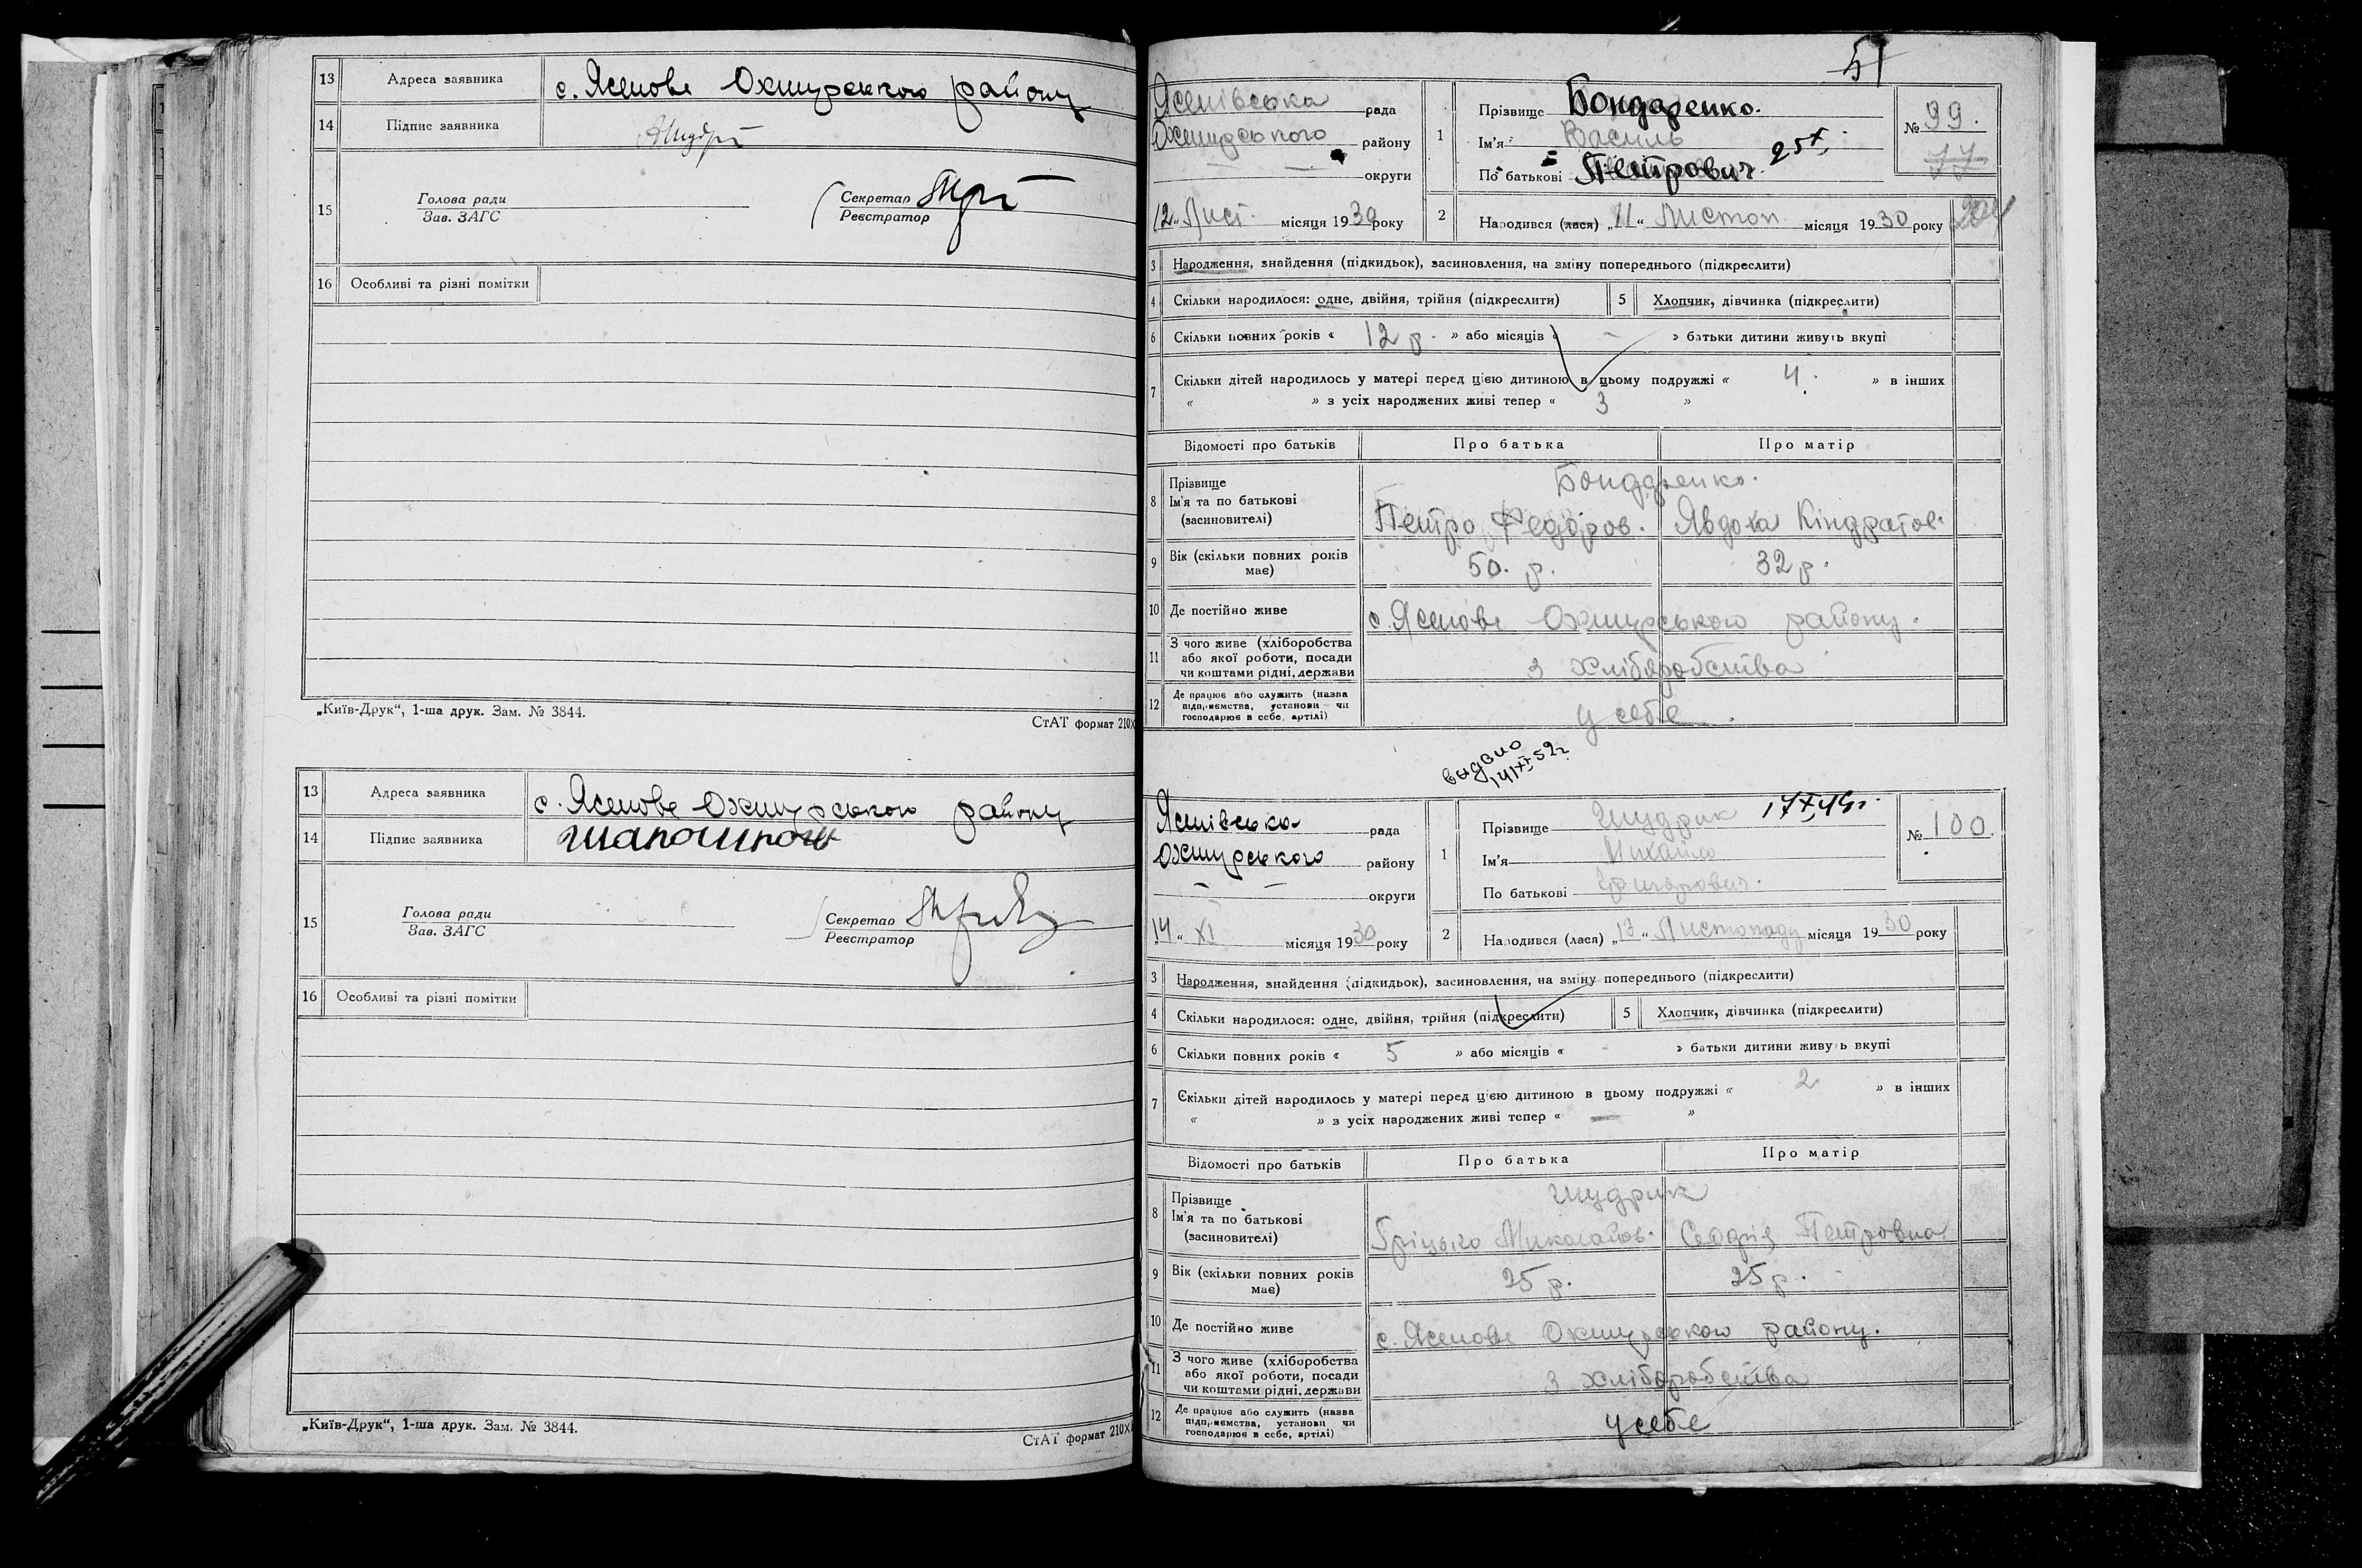 13 Адреса заявника с. Ясенове Охтирського району
14 Підпис заявника
15 Голова ради
Зав. ЗАГС
Секретар
Реєстратор
16 Особливі та різні помітки
„Київ-Друк“, 1-ша друк. Зам. № 3844.
СтАТ формат 210×
13 Адреса заявника с. Ясенове Охтирського району
14 Підпис заявника
15 Голова ради
Зав. ЗАГС
Секретар
Реєстратор
16 Особливі та різні помітки
„Київ-Друк“, 1-ша друк. Зам. № 3844.
СтАТ формат 210×
51
Ясенівська рада
Охтирського району
— — округи
„12“ Лист. місяця 1930 року
1 Прізвище Бондаренко.
Ім'я Василь
По батькові Петрович 25 X
№ 99.
77
2 Народився (лася) „11“ Листоп. місяця 1930 року
204
3 Народження, знайдення (підкидьок), засиновлення, на зміну попереднього (підкреслити)
4 Скільки народилося: одне, двійня, трійня (підкреслити) 5 Хлопчик, дівчинка (підкреслити)
6 Скільки повних років « 12 р. » або місяців « - » батьки дитини живуть вкупі
7 Скільки дітей народилось у матері перед цією дитиною в цьому подружжі « 4. » в інших
« » з усіх народжених живі тепер « 3 »
Відомості про батьків Про батька Про матір
8 Прізвище Бондаренко.
Ім'я та по батькові
(засиновителі) Петро Федоров. Явдоха Кіндратов.
9 Вік (скільки повних років має) 50. р. 32 р.
10 Де постійно живе с. Ясенове Охтирського району.
11 З чого живе (хліборобства
або якої роботи, посади
чи коштами рідні, держави з хліборобства
12 Де працює або служить (назва
підприємства, установи чи
господарює в себе, артілі) у себе.
видано
14/XI 52 г.
Ясенівська рада
Охтирського району
— — округи
„14“ XI місяця 1930 року
1 Прізвище Шудрик 17 X 49 г.
Ім'я Михайло
По батькові
№ 100.
2 Народився (лася) „13“ Листопаду місяця 1930 року
3 Народження, знайдення (підкидьок), засиновлення, на зміну попереднього (підкреслити)
4 Скільки народилося: одне, двійня, трійня (підкреслити) 5 Хлопчик, дівчинка (підкреслити)
6 Скільки повних років « 5 » або місяців « - » батьки дитини живуть вкупі
7 Скільки дітей народилось у матері перед цією дитиною в цьому подружжі « 2 » в інших
« » з усіх народжених живі тепер « — »
Відомості про батьків Про батька Про матір
8 Прізвище Шудрик
Ім'я та по батькові
(засиновителі) Гріцько Миколайов. Петровна
9 Вік (скільки повних років має) 25 р. 25 р.
10 Де постійно живе с. Ясенове Охтирського району.
11 З чого живе (хліборобства
або якої роботи, посади
чи коштами рідні, держави з хліборобства
12 Де працює або служить (назва
підприємства, установи чи
господарює в себе, артілі) у себе